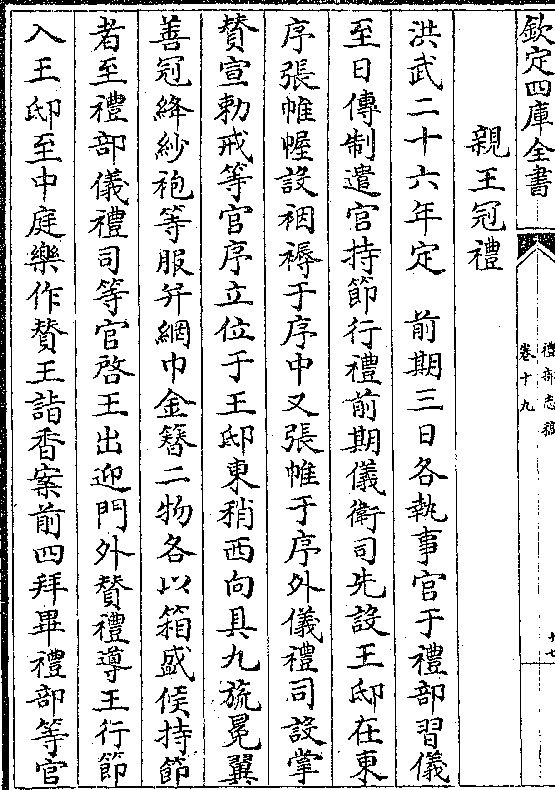 欽定四庫全書
禮部志稿
卷十九
十七
親王冠禮
洪武二十六年定　前期三日各執事官于禮部習儀
至日傳制遣官持節行禮前期儀衛司先設王邸在東
序張帷幄設裀褥于序中又張帷于序外儀禮司設掌
賛宣勅戒等官序立位于王邸東稍西向具九旒冕翼
善冠絳紗袍等服并網巾金簪二物各以箱盛候持節
者至禮部儀禮司等官啓王出迎門外賛禮導王行節
入王邸至中庭樂作賛王詣香案前四拜畢禮部等官